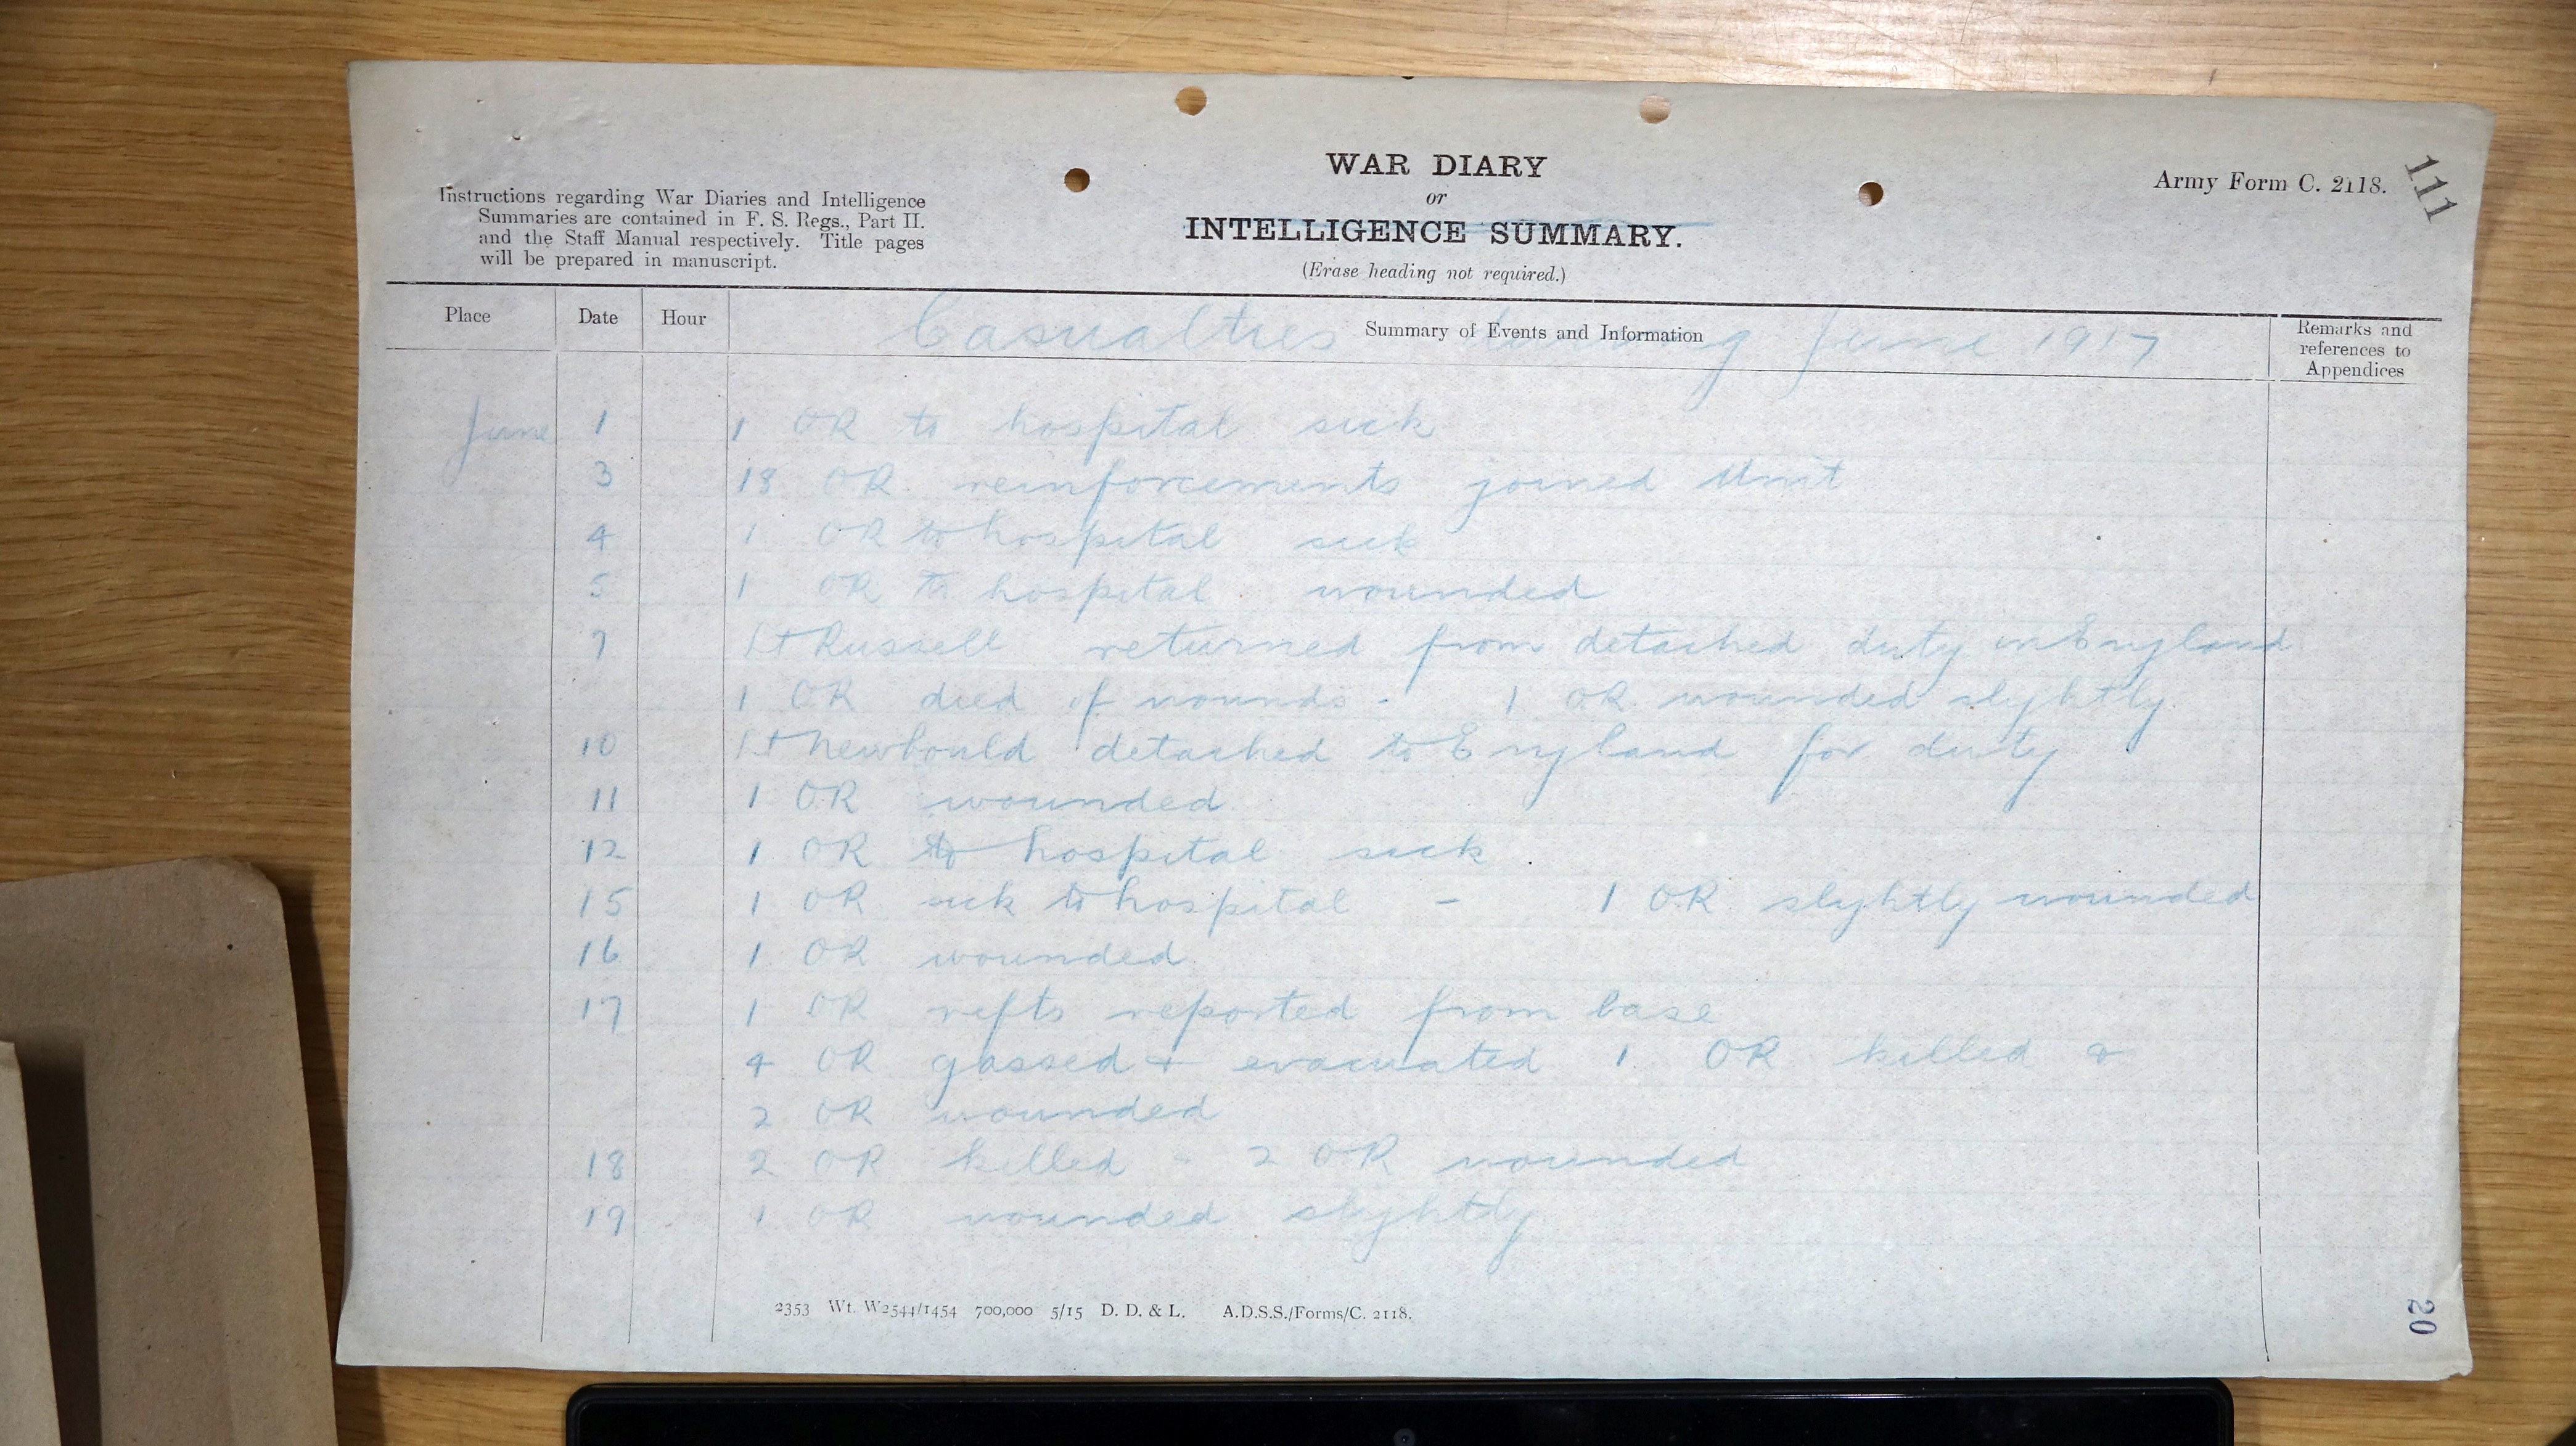 WAR DIARY
or
INTELLIGENCE SUMMARY.
(Erase heading not required.)
Instructions regarding War Diaries and Intelligence
Summaries are contained in F. S. Regs., Part II.
and the Staff Manual respectively. Title pages
will be prepared in manuscript.
Army Form C. 2118.
111
Place Date Hour Summary of Events and Information Remarks and references to Appendices
Casualties during June 1917
June 1 1 OR to hospital sick
3 18 OR reinforcements joined Unit
4 1 OR to hospital sick
5 1 OR to hospital wounded
7 Lt Russell returned from detached duty in England
1 OR died of wounds - 1 OR wounded slightly
10 Lt Newbould detached to England for duty
11 1 OR wounded
12 1 OR to hospital sick
15 1 OR sick to hospital - 1 OR slightly wounded
16 1 OR wounded
17 1 OR refts reported from base
4 OR gassed + evacuated 1 OR killed &
2 OR wounded
18 2 OR killed - 2 OR wounded
19 1 OR wounded slightly
2353 Wt. W2544/1454 700,000 5/15 D. D. & L. A.D.S.S./Forms/C. 2118.
20